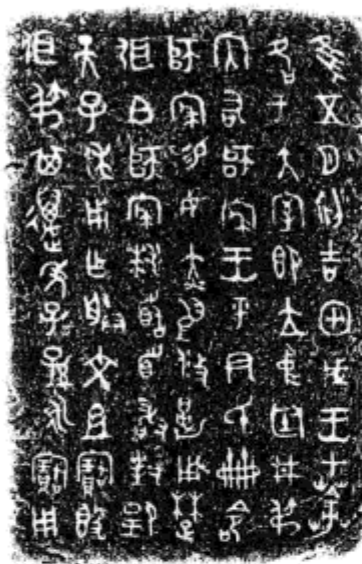 隹五月初吉甲戌王才䓊
各于大室即立中廷井弔
內右師察王乎尹氏冊命
師察易女赤舄攸勒用楚
弭白師察拜稽首敢對揚
天子休用乍朕文且寶𣪘
弭弔其萬年子孫永寶用